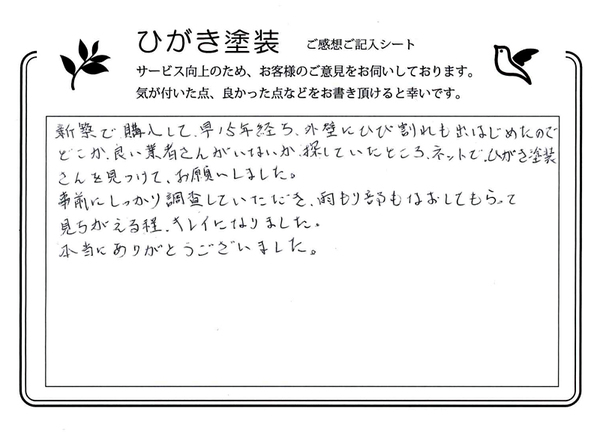 ひがき塗装 ご感想ご記入シート
サービス向上のため、お客様のご意見をお伺いしております。
気が付いた点、良かった点などをお書き頂けると幸いです。
新築で購入して、早15年経ち、外壁にひび割れも出はじめたので
どこか、良い業者さんがいないか、探していたところ、ネットで、ひがき塗装
さんを見つけて、お願いしました。
事前にしっかり調査していただき、雨もり部もなおしてもらって
見ちがえる程、キレイになりました。
本当にありがとうございました。